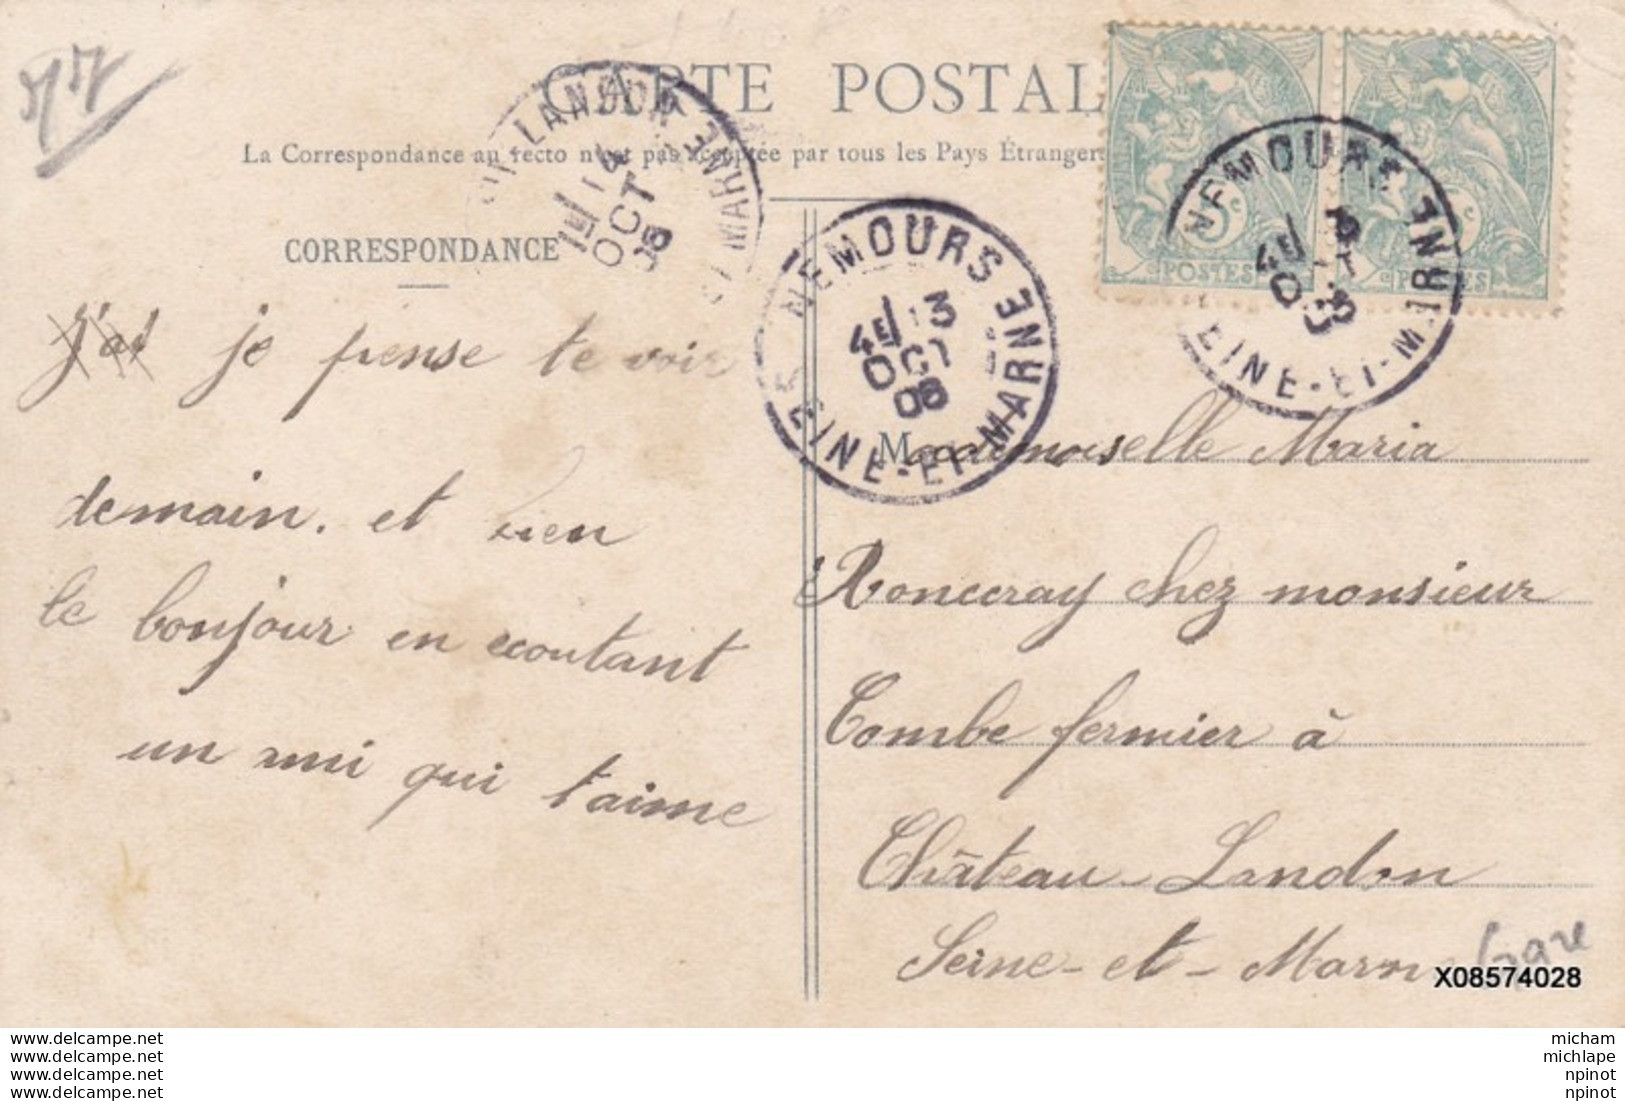 77
CARTE POSTALE
La Correspondance au recto n'est pas acceptée par tous les Pays Étrangers
CORRESPONDANCE
LANDON
1E 14
OCT
ET MARNE
NEMOURS
4E 13
OCT
06
SEINE-ET-MARNE
NEMOURS
4E
SEINE-ET-MARNE
5c
POSTES
POSTES
j'ai je pense te voir
demain. et bien
le bonjour en ecoutant
un ami qui t'aime
Mademoiselle Maria
Ronceray chez monsieur
Combe fermier à
Château-Landon
Seine-et-Marne
Gare
X08574028
www.delcampe.net
www.delcampe.net
www.delcampe.net
www.delcampe.net
micham
michlape
npinot
npinot